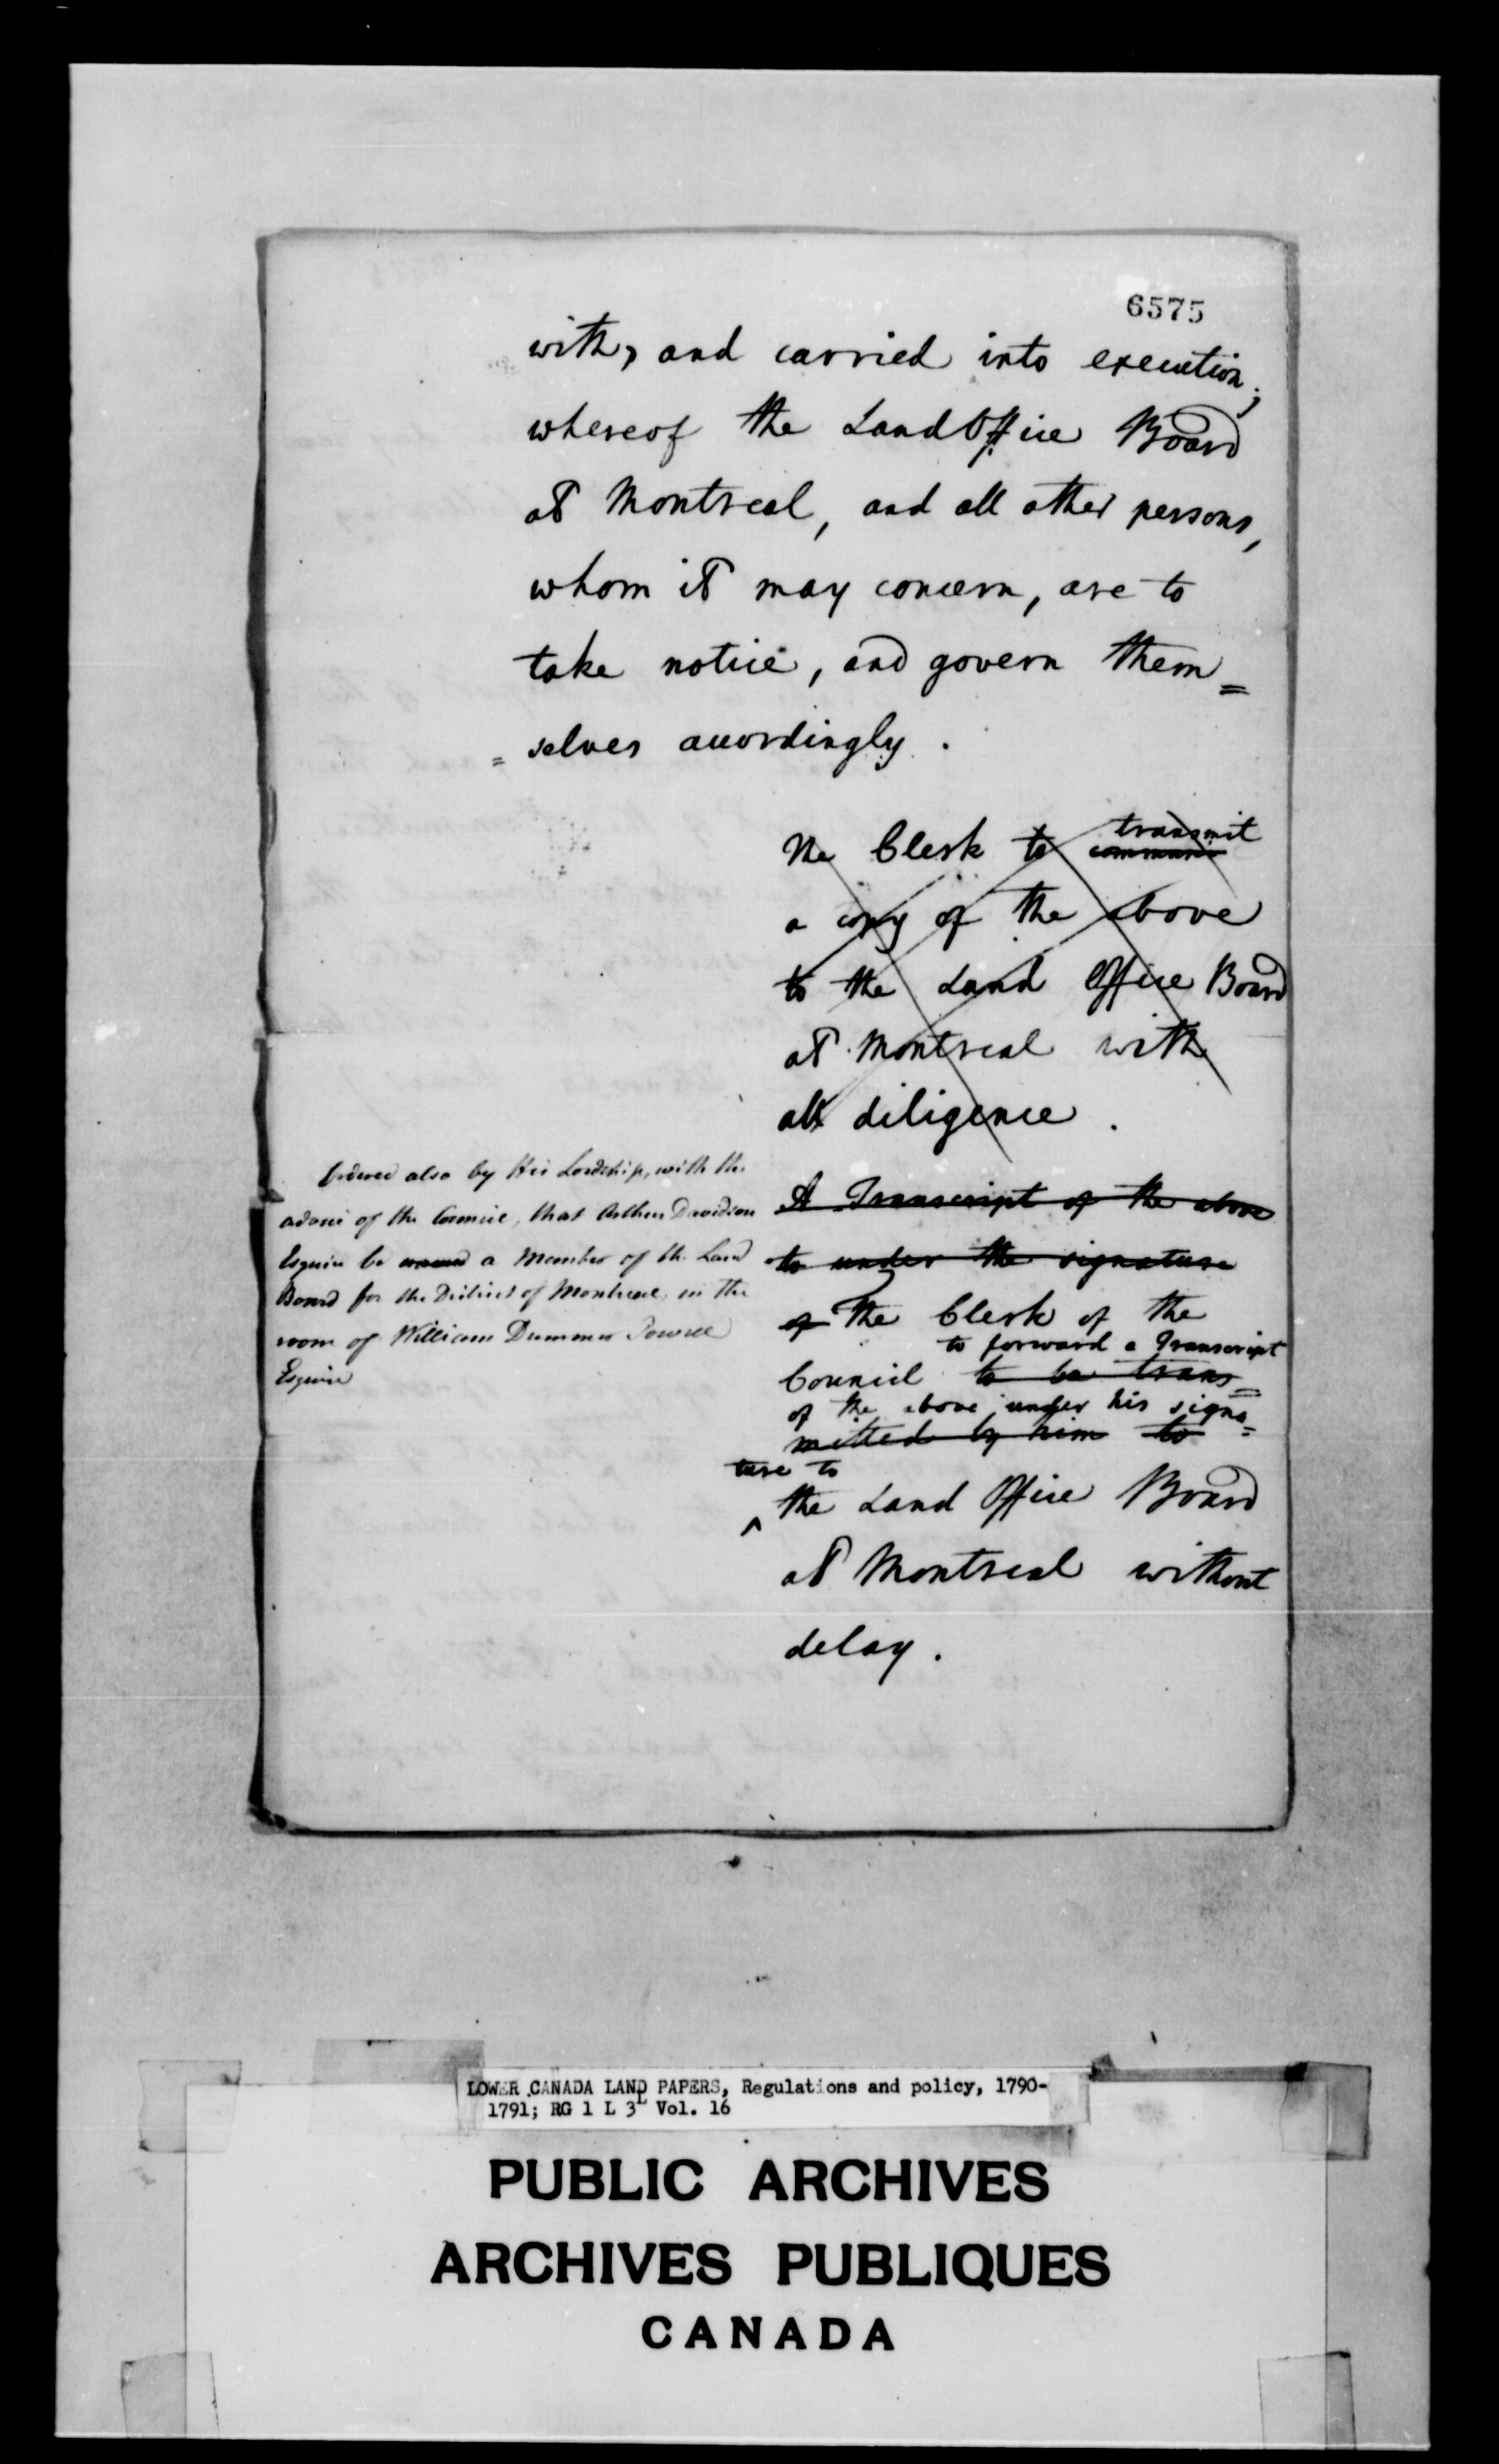 6575
with, and carried into execution;
whereof the Land Office Board
at Montreal, and all other persons,
whom it may concern, are to
take notice, and govern them=
=selves accordingly.
The Clerk to transmit
communi
a copy of the above
to the Land Office Board
at Montreal with
all diligence.
Ordered also by His Lordship, with the
advice of the Council, that Arthur Davidson
Esquire be named a Member of the Land
Board for the District of Montreal, in the
room of William Dummer Powell
Esquire
A Transcript of the above
to under the signature
of The Clerk of the
to forward a Transcript
Council to be trans=
of the above under his signa=
mitted by him to
ture to
^ the Land Office Board
at Montreal without
delay.
LOWER CANADA LAND PAPERS, Regulations and policy, 1790-
1791; RG 1 L 3L Vol. 16
PUBLIC ARCHIVES
ARCHIVES PUBLIQUES
CANADA